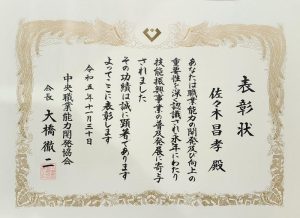 表彰状
佐々木昌孝殿
あなたは職業能力の開発及び向上の
重要性を深く認識され永年にわたり
技能振興事業の普及発展に寄与
されました
その功績は誠に顕著であります
よってここに表彰します
令和五年十一月三十日
中央職業能力開発協会
会長 大橋徹二